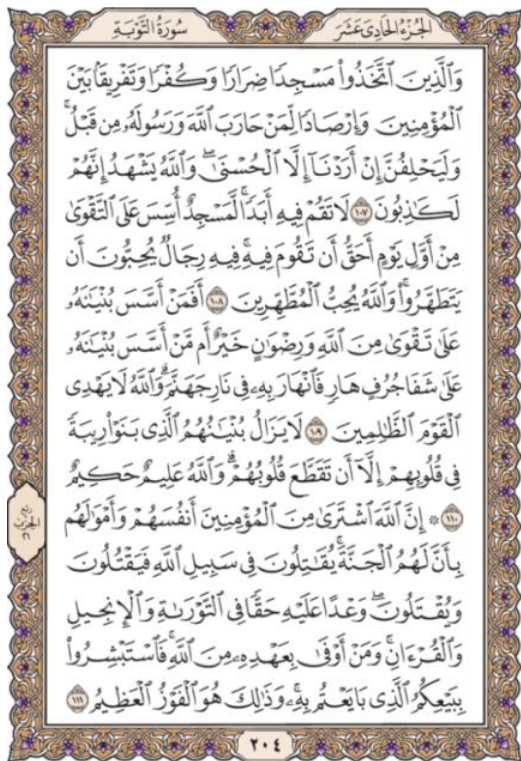 الجُزْءُ الحَادِىَ عَشَرَ
سُورَةُ التَّوْبَةِ
وَٱلَّذِينَ ٱتَّخَذُوا۟ مَسْجِدًا ضِرَارًا وَكُفْرًا وَتَفْرِيقًۢا بَيْنَ
ٱلْمُؤْمِنِينَ وَإِرْصَادًا لِّمَنْ حَارَبَ ٱللَّهَ وَرَسُولَهُۥ مِن قَبْلُ ۚ
وَلَيَحْلِفُنَّ إِنْ أَرَدْنَآ إِلَّا ٱلْحُسْنَىٰ ۖ وَٱللَّهُ يَشْهَدُ إِنَّهُمْ
لَكَـٰذِبُونَ ١٠٧ لَا تَقُمْ فِيهِ أَبَدًا ۚ لَّمَسْجِدٌ أُسِّسَ عَلَى ٱلتَّقْوَىٰ
مِنْ أَوَّلِ يَوْمٍ أَحَقُّ أَن تَقُومَ فِيهِ ۚ فِيهِ رِجَالٌ يُحِبُّونَ أَن
يَتَطَهَّرُوا۟ ۚ وَٱللَّهُ يُحِبُّ ٱلْمُطَّهِّرِينَ ١٠٨ أَفَمَنْ أَسَّسَ بُنْيَـٰنَهُۥ
عَلَىٰ تَقْوَىٰ مِنَ ٱللَّهِ وَرِضْوَٰنٍ خَيْرٌ أَم مَّنْ أَسَّسَ بُنْيَـٰنَهُۥ
عَلَىٰ شَفَا جُرُفٍ هَارٍ فَٱنْهَارَ بِهِۦ فِى نَارِ جَهَنَّمَ ۗ وَٱللَّهُ لَا يَهْدِى
ٱلْقَوْمَ ٱلظَّـٰلِمِينَ ١٠٩ لَا يَزَالُ بُنْيَـٰنُهُمُ ٱلَّذِى بَنَوْا۟ رِيبَةً
فِى قُلُوبِهِمْ إِلَّآ أَن تَقَطَّعَ قُلُوبُهُمْ ۗ وَٱللَّهُ عَلِيمٌ حَكِيمٌ
١١٠ ۞ إِنَّ ٱللَّهَ ٱشْتَرَىٰ مِنَ ٱلْمُؤْمِنِينَ أَنفُسَهُمْ وَأَمْوَٰلَهُم
بِأَنَّ لَهُمُ ٱلْجَنَّةَ ۚ يُقَـٰتِلُونَ فِى سَبِيلِ ٱللَّهِ فَيَقْتُلُونَ
وَيُقْتَلُونَ ۖ وَعْدًا عَلَيْهِ حَقًّا فِى ٱلتَّوْرَىٰةِ وَٱلْإِنجِيلِ
وَٱلْقُرْءَانِ ۚ وَمَنْ أَوْفَىٰ بِعَهْدِهِۦ مِنَ ٱللَّهِ ۚ فَٱسْتَبْشِرُوا۟
بِبَيْعِكُمُ ٱلَّذِى بَايَعْتُم بِهِۦ ۚ وَذَٰلِكَ هُوَ ٱلْفَوْزُ ٱلْعَظِيمُ ١١١
ربع
الحزب
٢١
٢٠٤